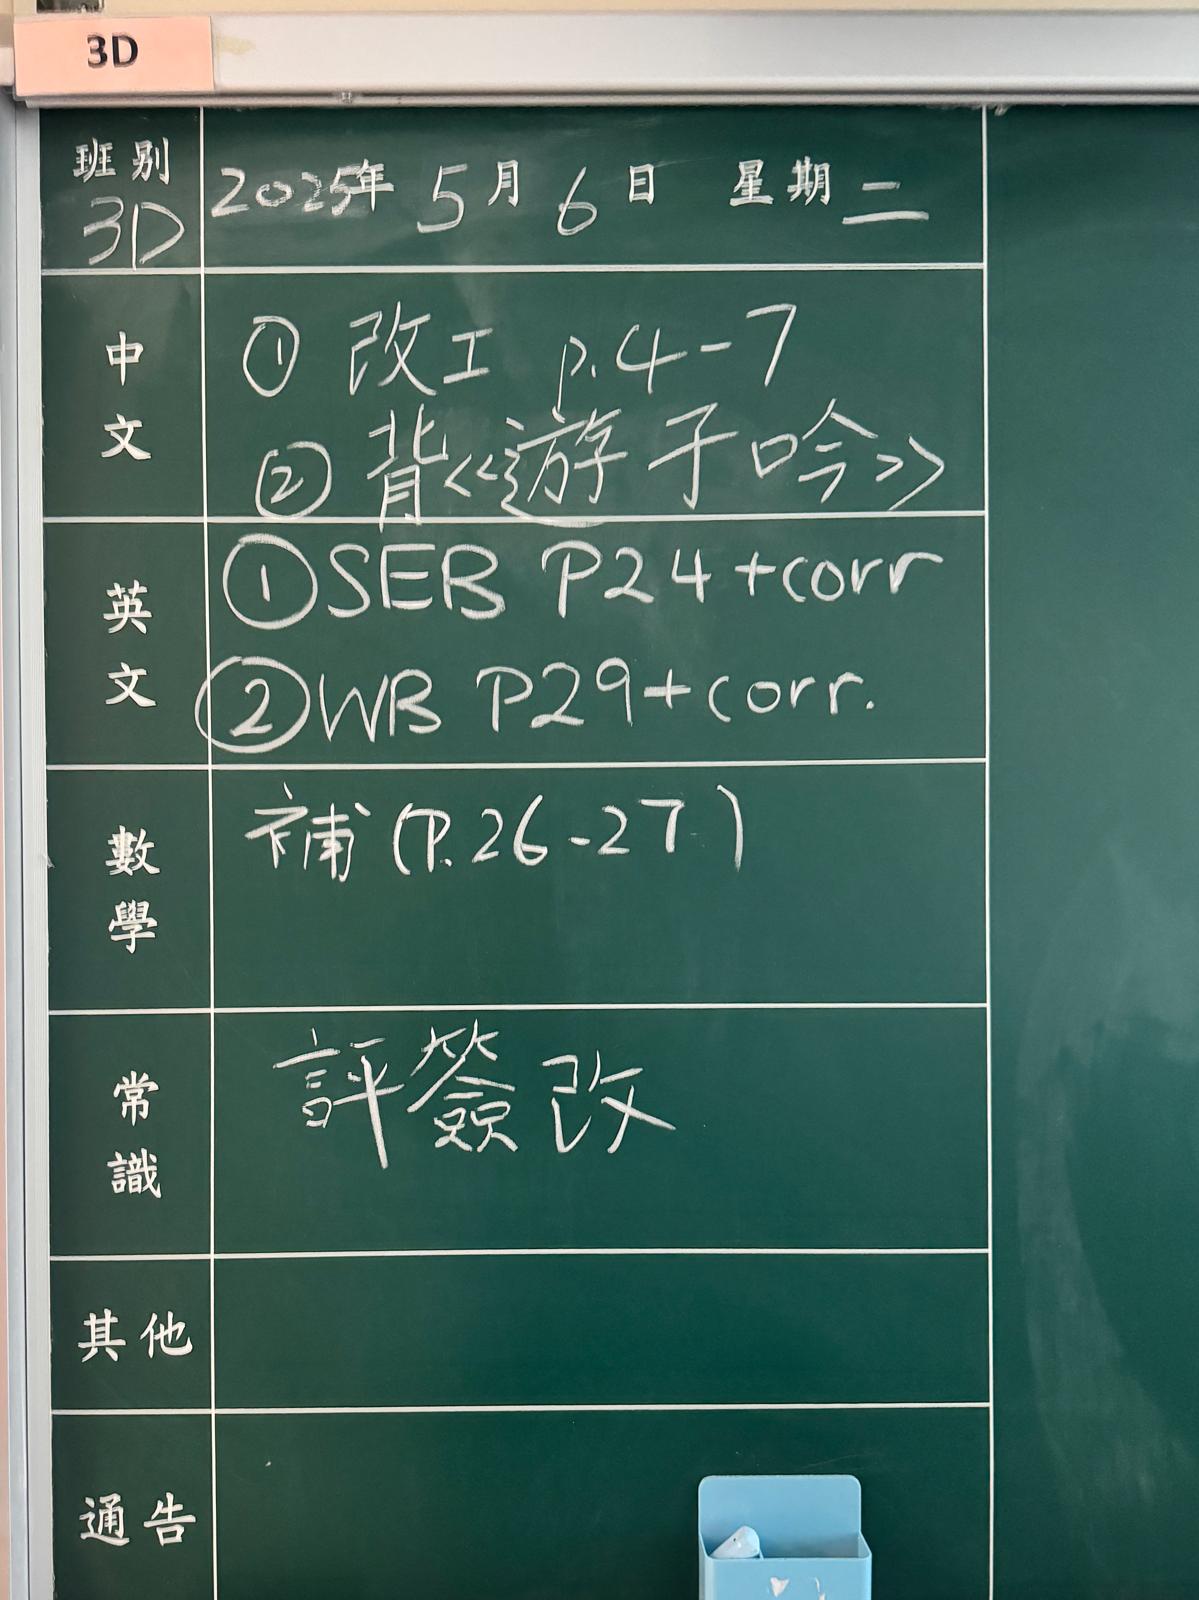 3D
班別 3D 2025年 5月 6日 星期二
中文
① 改工 p.4-7
② 背<<遊子吟>>
英文
① SEB P24+corr
② WB P29+corr.
數學
補(P.26-27)
常識
評簽改
其他
通告